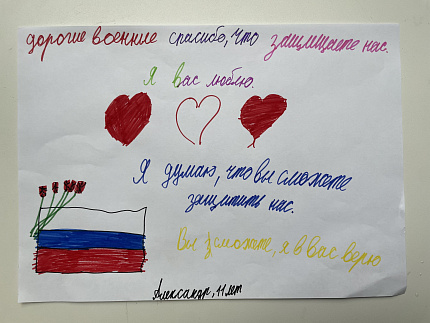 дорогие военние спасибо, что защищаете нас.
Я вас люблю.
Я думаю, что вы сможете
защитить нас.
Вы сможете, я в вас верю
Александр, 11 лет